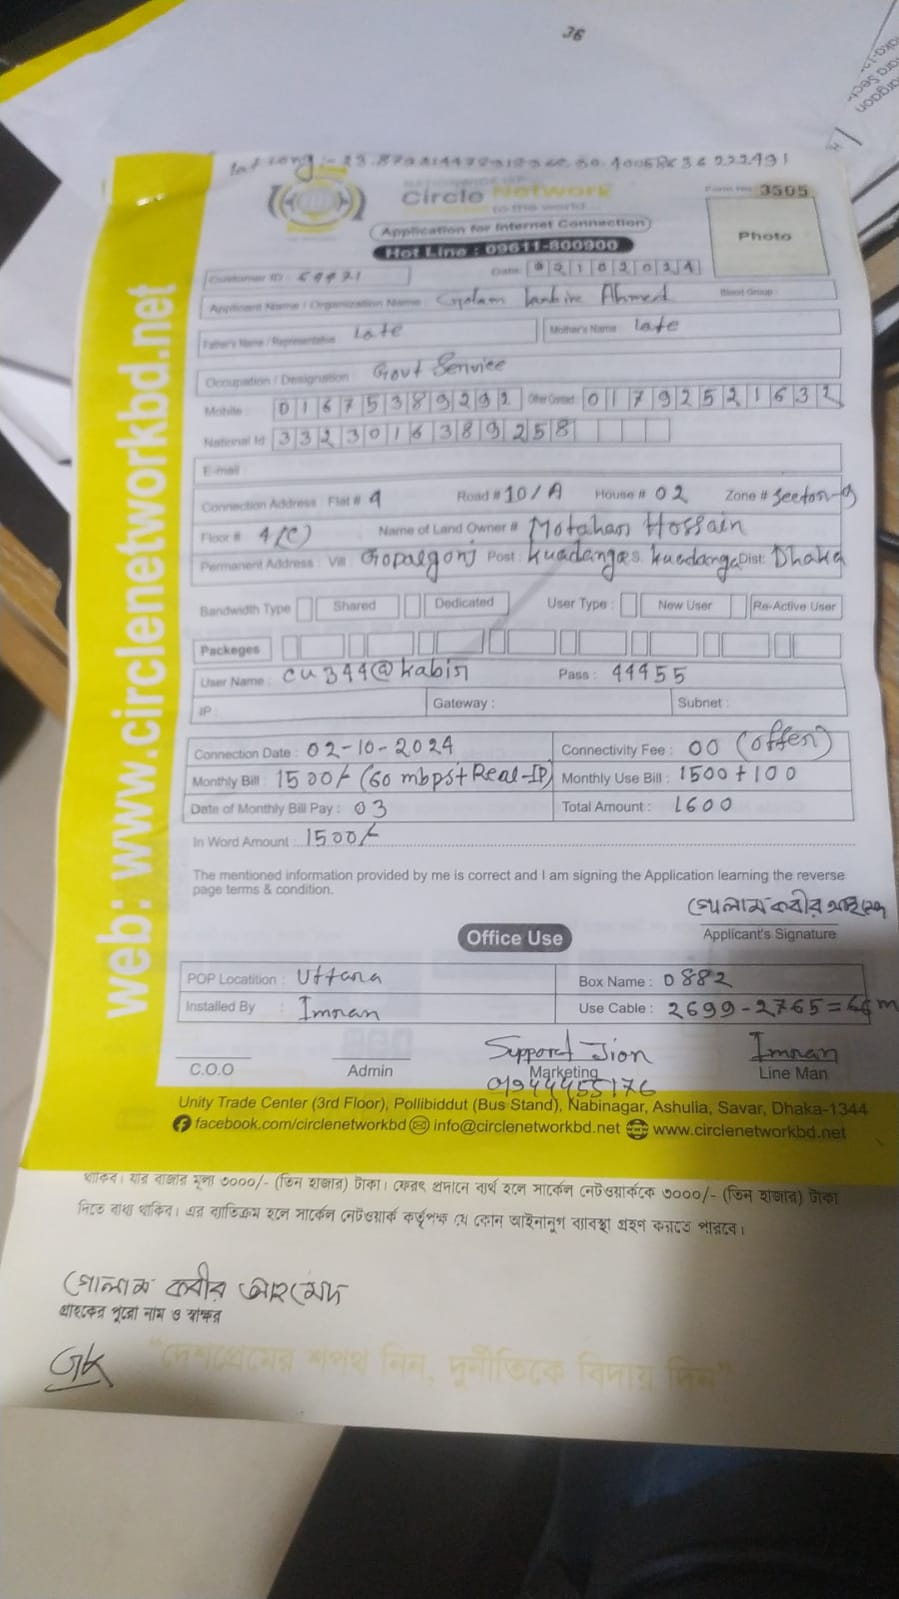 36
Circle Network
to the world
Form No 3505
Application for Internet Connection
Hot Line : 09611-800900
Photo
Customer ID :
Date : 02102024
Applicant Name / Organization Name : Ahmed Blood Group :
Father's Name / Representative : Late Mother's Name : Late
Occupation / Designation : Govt Service
Mobile : 01675389292 Other Contact : 01792521632
National Id : 3323016389258
E-mail :
Connection Address : Flat # 4 Road # 10/A House # 02 Zone # Sector-9
Floor # 4(C) Name of Land Owner # Motahar Hossain
Permanent Address : Vill : Gopalgonj Post : Dist: Dhaka
Bandwidth Type Shared Dedicated User Type : New User Re-Active User
Packeges
User Name : cu344@kabir Pass : 44455
IP : Gateway : Subnet :
Connection Date : 02-10-2024 Connectivity Fee : 00 (offer)
Monthly Bill : 1500/- (60 mbps+Real-IP) Monthly Use Bill : 1500+100
Date of Monthly Bill Pay : 03 Total Amount : 1600
In Word Amount : 1500/-
The mentioned information provided by me is correct and I am signing the Application learning the reverse
page terms & condition.
গোলাম কবীর আহমেদ
Applicant's Signature
Office Use
POP Locatition : Uttara Box Name : 0882
Installed By : Imran Use Cable : 2699-2765=66m
Support Jion Imran
C.O.O Admin Marketing Line Man
01944455176
Unity Trade Center (3rd Floor), Pollibiddut (Bus Stand), Nabinagar, Ashulia, Savar, Dhaka-1344
facebook.com/circlenetworkbd info@circlenetworkbd.net www.circlenetworkbd.net
web: www.circlenetworkbd.net
থাকিব। যার বাজার মূল্য ৩০০০/- (তিন হাজার) টাকা। ফেরৎ প্রদানে ব্যর্থ হলে সার্কেল নেটওয়ার্ককে ৩০০০/- (তিন হাজার) টাকা
দিতে বাধ্য থাকিব। এর ব্যতিক্রম হলে সার্কেল নেটওয়ার্ক কর্তৃপক্ষ যে কোন আইনানুগ ব্যাবস্থা গ্রহণ করতে পারবে।
গোলাম কবীর আহমেদ
গ্রাহকের পুরো নাম ও স্বাক্ষর
GK
"দেশপ্রেমের শপথ নিন, দুর্নীতিকে বিদায় দিন"